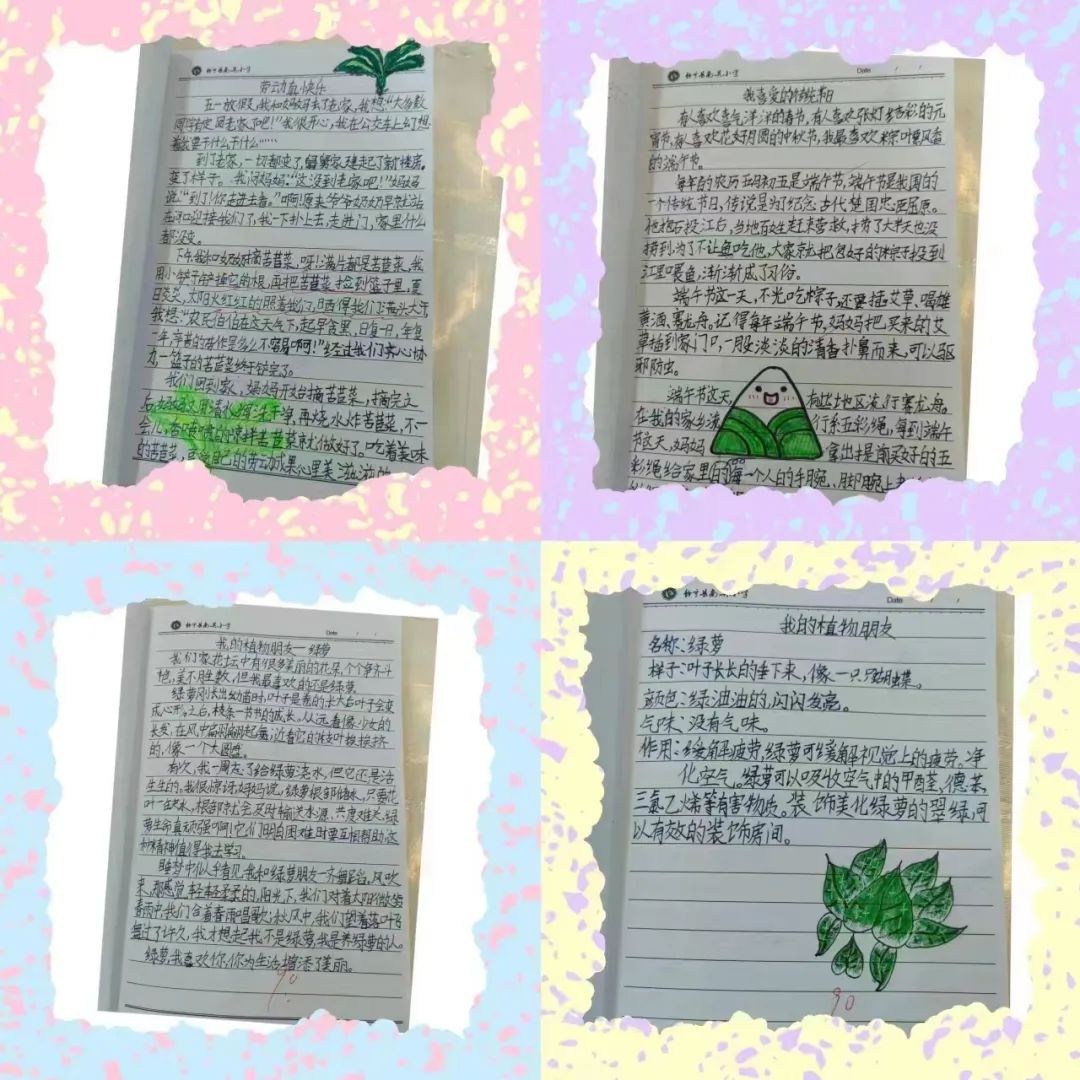 劳动真快乐
五一放假,我和妈妈去了老家,我想:“大多数
同学肯定回老家了吧!”我很开心,我在公交车上幻想
着我要干什么干什么……
到了老家,一切都变了,舅舅家建起了新楼房。
变了样子。我问妈妈:“这没到老家吧!”妈妈
说:“到了!你走进去看。”啊!原来爷爷奶奶早就站
在门口迎接我们了,我一下扑上去,走进门,家里什么
都没变。
下午,我和奶奶去摘苦苣菜,呀!满片都是苦苣菜,我
用小铲子铲掉它的根,再把苦苣菜捡到篮子里,夏
日炎炎,太阳火红红的照着我们,日晒得我们正满头大汗,
我想:“农民伯伯在这大气下,起早贪黑,日复一日,年复
一年,辛苦的劳作是多么不容易啊!”经过我们齐心协
力,一篮子的苦苣菜终于铲完了。
我们回到家,妈妈开始摘苦苣菜,摘完之
后,妈妈又用清水把它洗干净,再烧水炸苦苣菜,不一
会儿,香喷喷的凉拌苦苣菜就做好了。吃着美味
的苦苣菜,自己的劳动成果心里美滋滋的
我喜爱的传统节日
有人喜欢喜气洋洋的春节,有人喜欢张灯结彩的元
宵节,有人喜欢花好月圆的中秋节,我最喜欢米粽叶熏风香
的端午节。
每年的农历五月初五是端午节,端午节是我国的
一个传统节日,传说是为了纪念古代楚国忠臣屈原。
他抱石投江后,当地百姓赶来营救,捞了大半天也没
捞到,为了不让鱼吃他,大家就把包好的粽子投到
江里喂鱼,渐渐成了习俗。
端午节这一天,不光吃粽子,还要插艾草、喝雄
黄酒、赛龙舟。记得每年端午节,妈妈把买来的艾
草插到家门口,一股淡淡的清香扑鼻而来,可以驱
邪防虫。
端午节这天,有些地区流行赛龙舟。
在我的家乡流行系五彩绳,每到端午
节这天,妈妈拿出提前买好的五
彩绳给家里的每一个人的手腕、脚腕上
我的植物朋友—绿萝
我们家花坛中有很多美丽的花朵,个个争奇斗
艳,美不胜数,但我最喜欢的还是绿萝。
绿萝刚长出幼苗时,叶子是卷的,长大后叶子会变
成心形。之后,枝条一节节的成长,从远看像少女的
长发,在风中翩翩起舞;近看它的枝叶挨挨挤挤
的,像一个大圆连。
有次,我一周忘了给绿萝浇水,但它还是活
生生的,我很惊讶,妈妈说,绿萝根部储水,只要花
叶一缺水,根部就会及时输送水源、共度难关。绿
萝生命真顽强啊!它们明白困难时要互相帮助,这
种精神值得我去学习。
睡梦中,似乎看见我和绿萝朋友一齐舞蹈,风吹
来,那感觉轻轻柔柔的,阳光下,我们对着太阳微笑;
春雨中,我们合着春雨唱歌;秋风中,我们望着落叶飞
舞过了许久,我才想起我不是绿萝,我是养绿萝的人。
绿萝,我喜欢你,你为生活增添了美丽。
90
我的植物朋友
名称:绿萝
样子:叶子长长的垂下来,像一只只蝴蝶。
颜色:绿油油的,闪闪发亮。
气味:没有气味。
作用:缓解疲劳,绿萝可缓解视觉上的疲劳。净
化空气。绿萝可以吸收空气中的甲醛、德苯、
三氯乙烯等有害物质。装饰美化绿萝的翠绿,可
以有效的装饰房间。
90